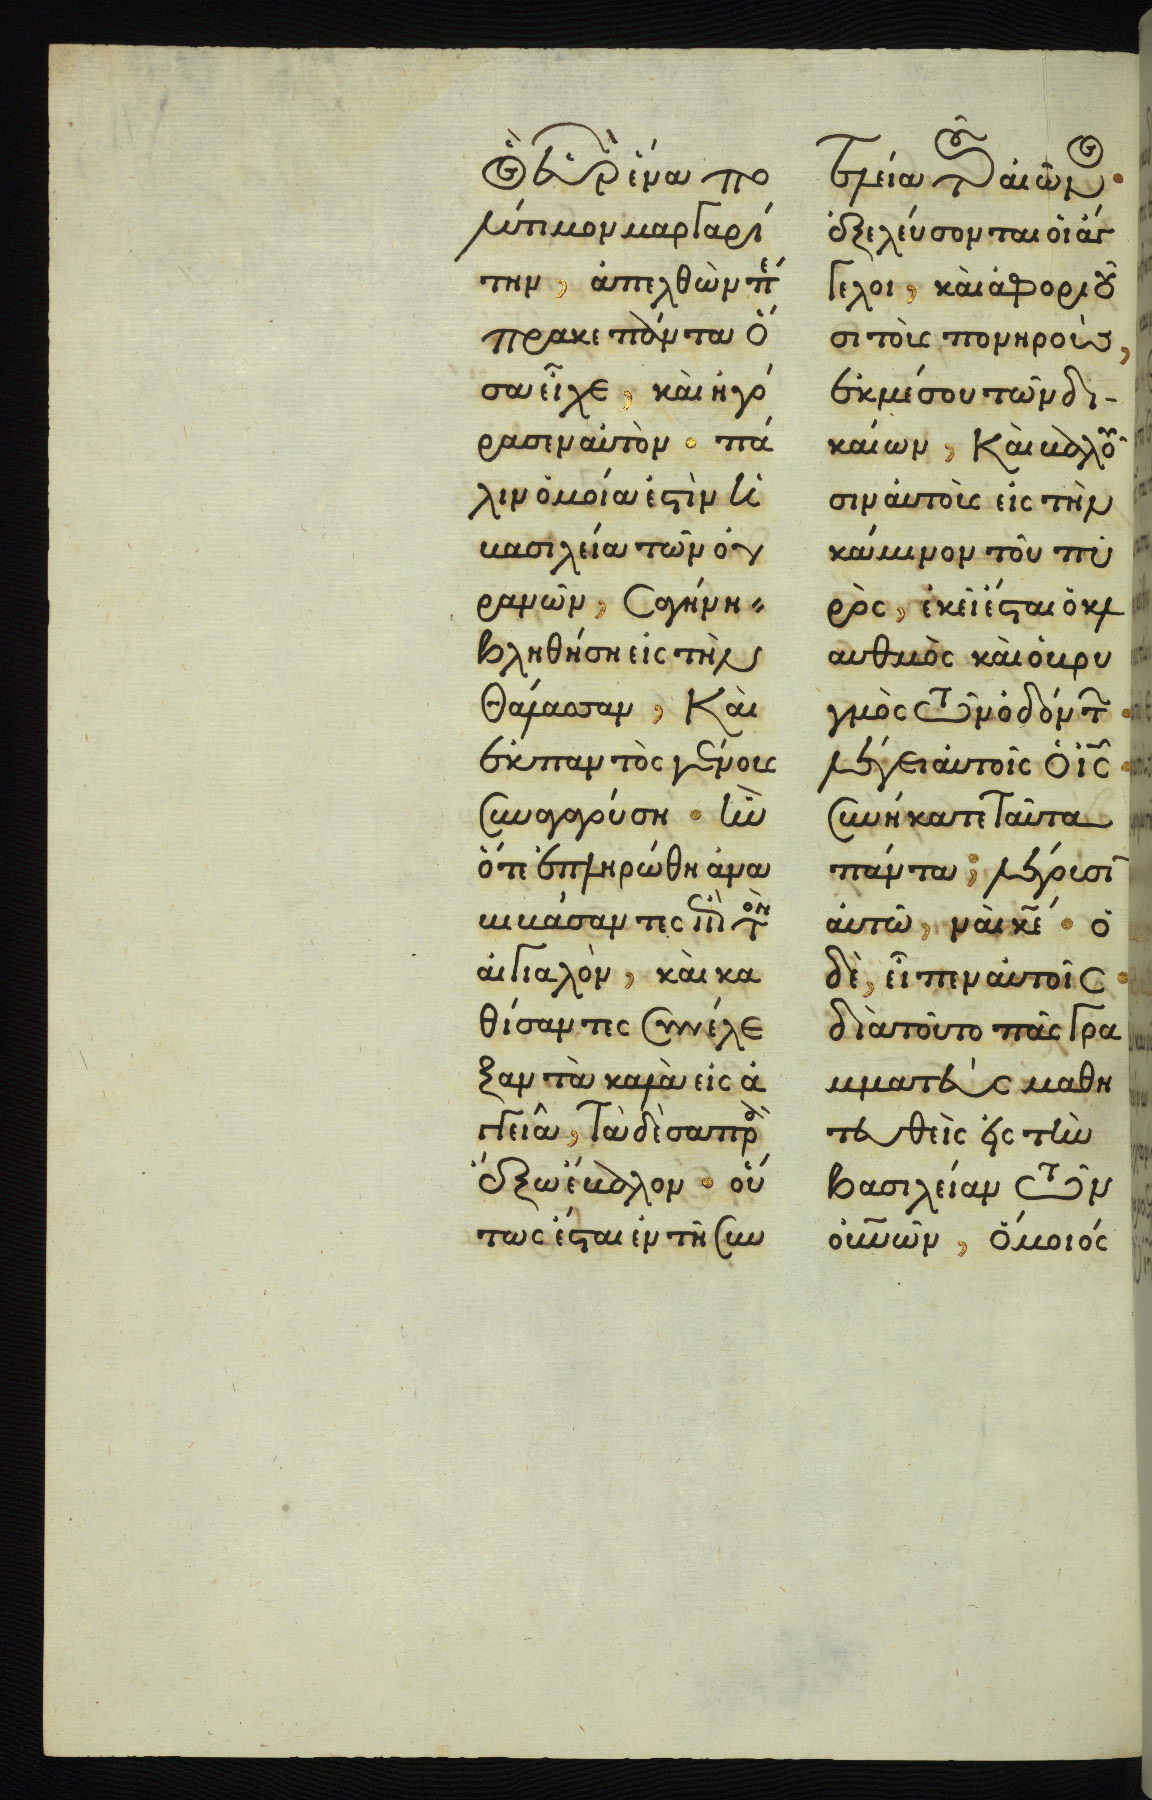 ὃς εὑρὼν ἕνα πο
λύτιμον μαργαρί
την, ἀπελθὼν πέ
πρακε πάντα ὅ
σα εἶχε, καὶ ἠγό
ρασεν αὐτὸν · πά
λιν ὁμοία ἐστὶν ἡ
βασιλεία τῶν οὐ
ρανῶν, σαγήνη
βληθήση εἰς τὴν
θάλασσαν, Καὶ
ἐκ παντὸς γένους
συναγαγούση · ἣν
ὅτε ἐπληρώθη ἀνα
βιβάσαντες ἐπὶ τὸν
αἰγιαλὸν, καὶ κα
θίσαντες συνέλε
ξαν τὰ καλὰ εἰς ἀ
γγεῖα, τὰ δὲ σαπρὰ
ἔξω ἔβαλον · οὕ
τως ἔσται ἐν τῆ συν
τελεία τοῦ αἰῶνος ·
ἐξελεύσονται οἱ ἄγ
γελοι, καὶ ἀφοριοῦ
σι τοὺς πονηροὺς,
ἐκ μέσου τῶν δι-
καίων, Καὶ βαλοῦ
σιν αὐτοὺς εἰς τὴν
κάμινον τοῦ πυ
ρὸς, ἐκεῖ ἔσται ὁ κλ
αυθμὸς καὶ ὁ βρυ
γμὸς τῶν ὀδόντ ·
λέγει αὐτοῖς ὁ ἰς ·
συνήκατε ταῦτα
πάντα; λέγουσι
αὐτῶ, ναὶ κε · ὁ
δὲ, εἶπεν αὐτοῖς ·
διὰ τοῦτο πᾶς γρα
μματεὺς μαθη
τευθεὶς εἰς τὴν
βασιλείαν τῶν
οὐνῶν, ὅμοιός